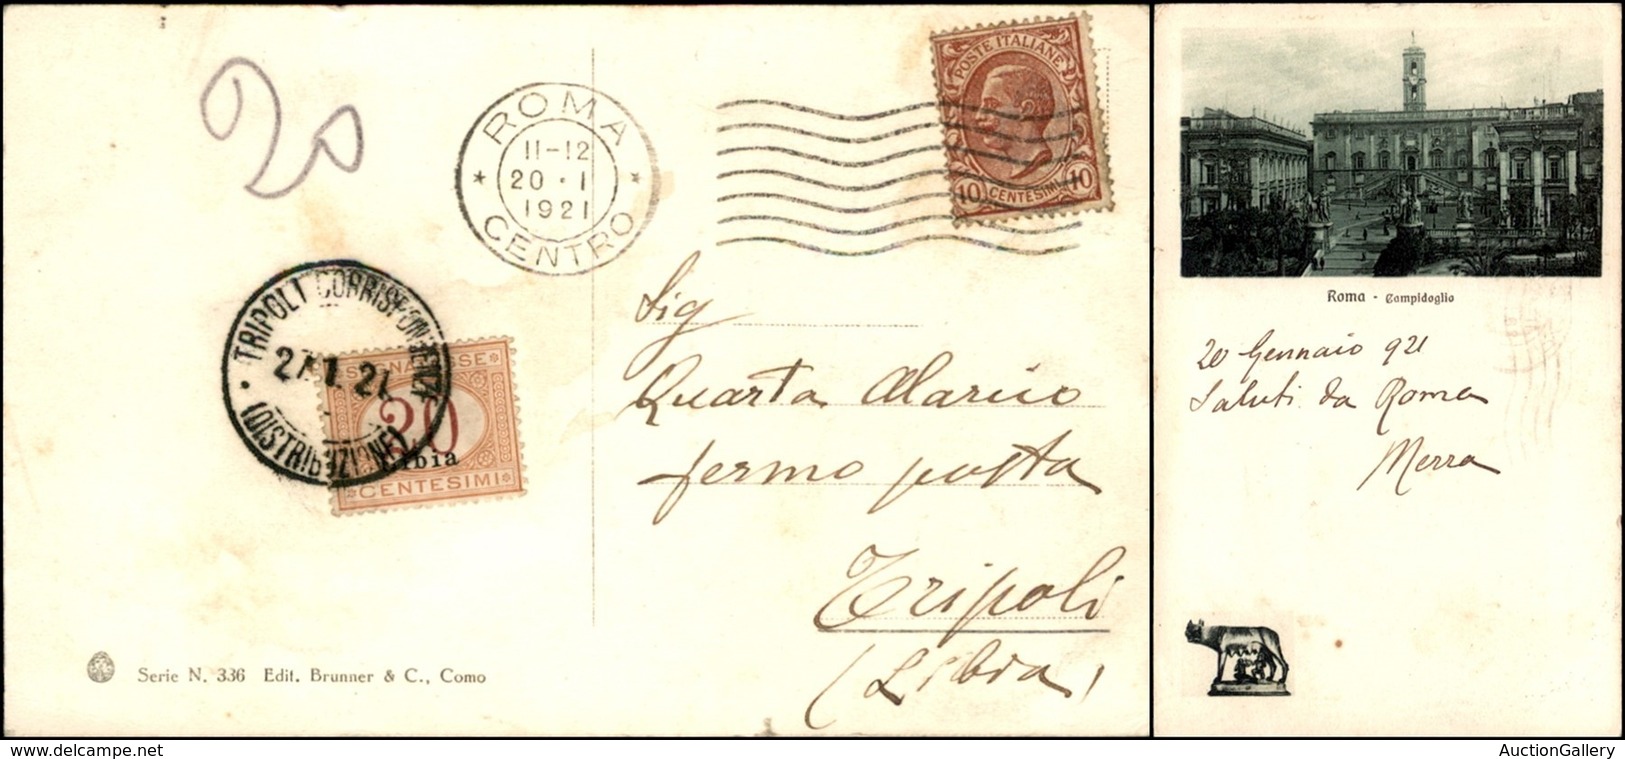 20
ROMA
CENTRO
11-12
20 · 1
1921
POSTE ITALIANE
10 CENTESIMI 10
TRIPOLI CORRISPONDENZE
27.1.21
(DISTRIBUZIONE)
SEGNATASSE
20
Libia
CENTESIMI
Sig
Quarta
fermo posta
Tripoli
(Libia)
Serie N. 336 Edit. Brunner & C., Como
Roma - Campidoglio
20 Gennaio 921
Saluti da Roma
Merra
AuctionGallery